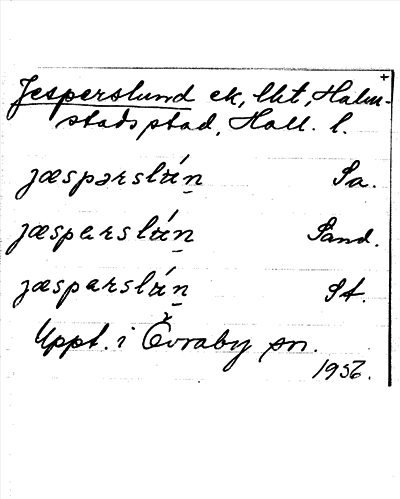 Jesperslund ek, lht, Halm-
stads stad, Hall. l.
jæspərslún̠ Sa.
jæsparslún̠ Sand.
jæsparslún̠ St.
Uppt. i Övraby sn.
1956.